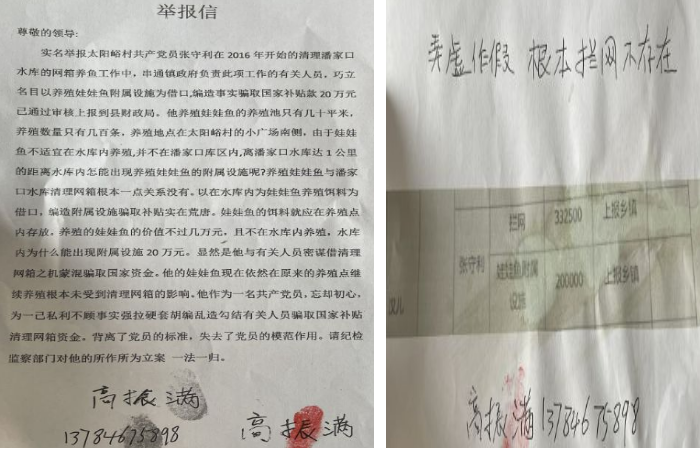 举报信
尊敬的领导:
实名举报太阳峪村共产党员张守利在 2016 年开始的清理潘家口
水库的网箱养鱼工作中，串通镇政府负责此项工作的有关人员，巧立
名目以养殖娃娃鱼附属设施为借口,编造事实骗取国家补贴款 20 万元
已通过审核上报到县财政局。他养殖娃娃鱼的养殖池只有几十平米，
养殖数量只有几百条，养殖地点在太阳峪村的小广场南侧，由于娃娃
鱼不适宜在水库内养殖,并不在潘家口库区内,离潘家口水库达 1 公里
的距离水库内怎能出现养殖娃娃鱼的附属设施呢?养殖娃娃鱼与潘家
口水库清理网箱根本一点关系没有。以在水库内为娃娃鱼养殖饵料为
借口，编造附属设施骗取补贴实在荒唐。娃娃鱼的饵料就应在养殖点
内存放，养殖的娃娃鱼的价值不过几万元，且不在水库内养殖，水库
内为什么能出现附属设施 20 万元。显然是他与有关人员密谋借清理
网箱之机蒙混骗取国家资金。他的娃娃鱼现在依然在原来的养殖点继
续养殖根本未受到清理网箱的影响。他作为一名共产党员，忘却初心，
为一己私利不顾事实强拉硬套胡编乱造勾结有关人员骗取国家补贴
清理网箱资金。背离了党员的标准，失去了党员的模范作用。请纪检
监察部门对他的所作所为立案 一法一归。
高振满
13784675898
高振满
弄虚作假 根本拦网不存在
拦网 332500 上报乡镇
张守利
娃娃鱼附属
设施 200000 上报乡镇
高振满13784675898